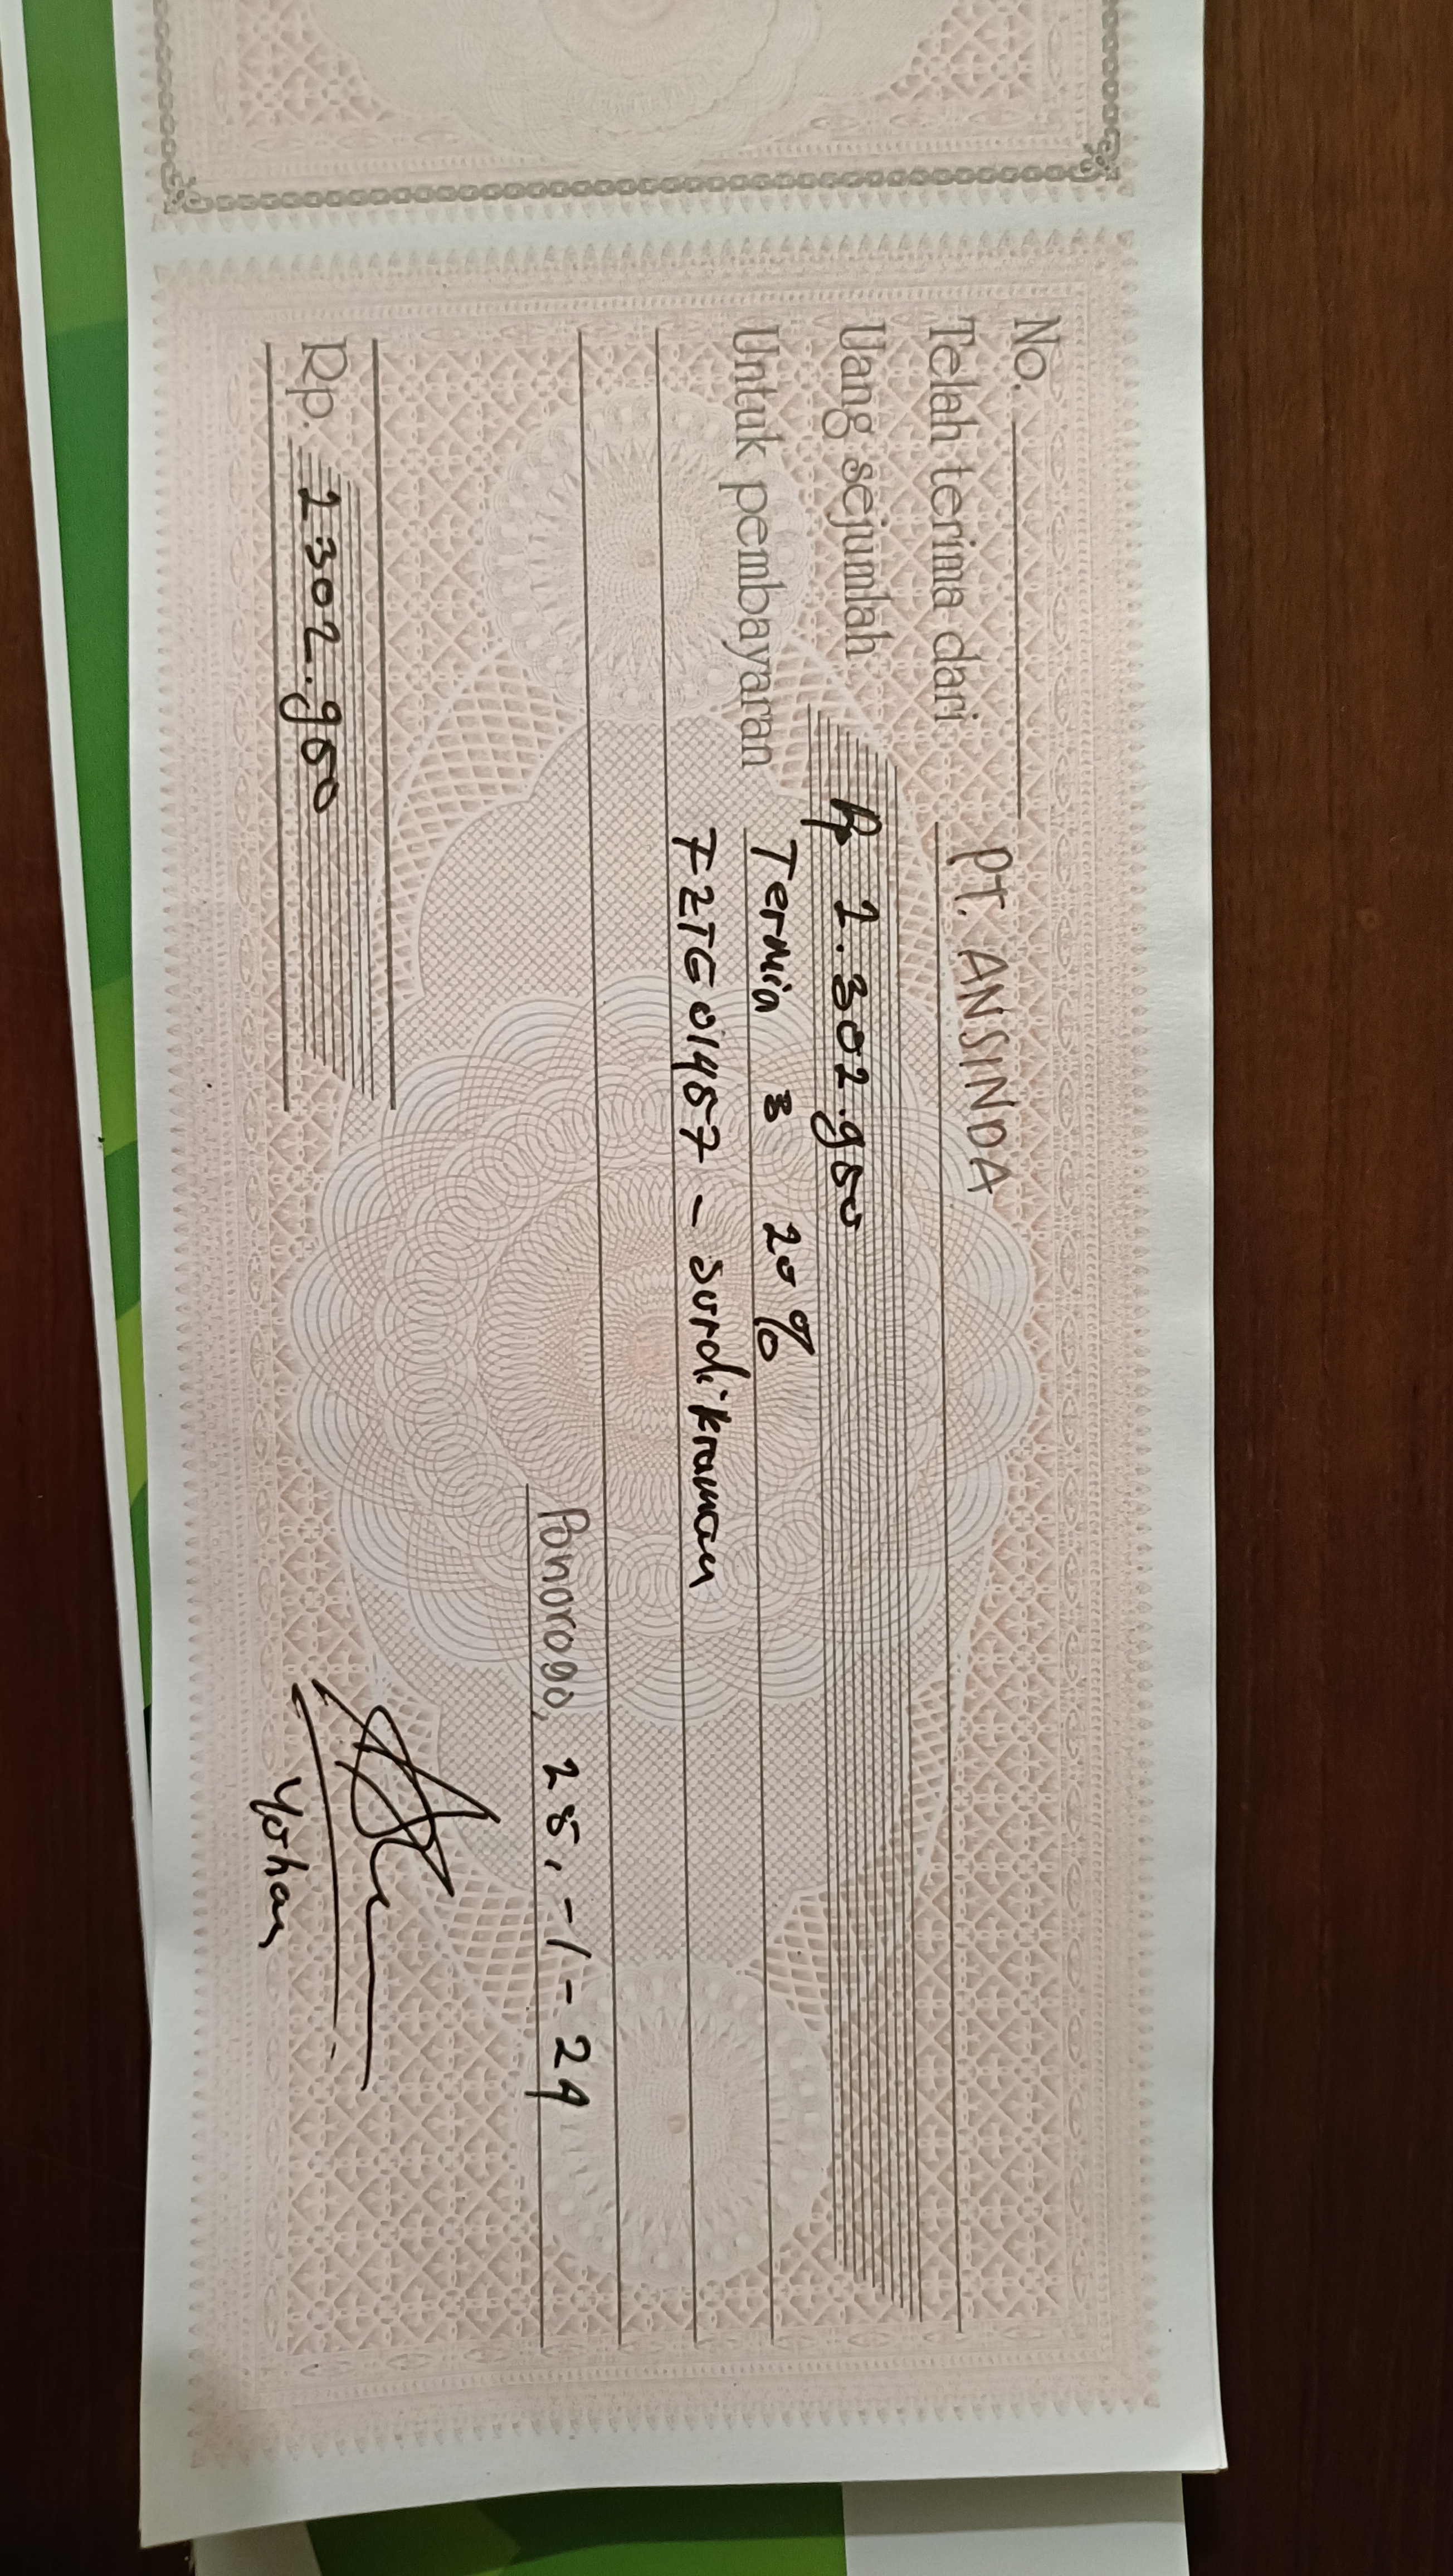 No.
Telah terima dari PT. ANSINDA
Uang sejumlah Rp 2.302.900
Untuk pembayaran Termin 3 20%
FZTE01457 - Surdikraman
Ponorogo, 25, -1-24
Rp. 2302.900
Yohan